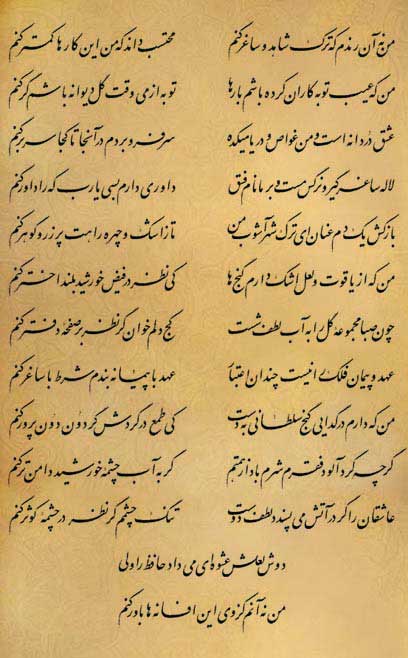 من نه آن رندم که ترک شاهد و ساغر کنم محتسب داند که من این کارها کمتر کنم
من که عیب توبه کاران کرده باشم بارها توبه از می وقت گل دیوانه باشم گر کنم
عشق دردانه است و من غواص و دریا میکده سر فرو بردم در آنجا تا کجا سر بر کنم
لاله ساغر گیر و نرگس مست و بر ما نام فسق داوری دارم بسی یا رب که را داور کنم
بازکش یک دم عنان ای ترک شهرآشوب من تا ز اشک و چهره راهت پر زر و گوهر کنم
من که از یاقوت و لعل اشک دارم گنج ها کی نظر در فیض خورشید بلند اختر کنم
چون صبا مجموعه گل را به آب لطف شست کج دلم خوان گر نظر بر صفحه دفتر کنم
عهد و پیمان فلک را نیست چندان اعتبار عهد با پیمانه بندم شرط با ساغر کنم
من که دارم در گدایی گنج سلطانی به دست کی طمع در گردش گردون دون پرور کنم
گرچه گردآلود فقرم شرم باد از همتم گر به آب چشمه خورشید دامن تر کنم
عاشقان را گر در آتش می پسندد لطف دوست تنگ چشمم گر نظر در چشمه کوثر کنم
دوش لعلش عشوه ای می داد حافظ را ولی
من نه آنم کز وی این افسانه ها باور کنم